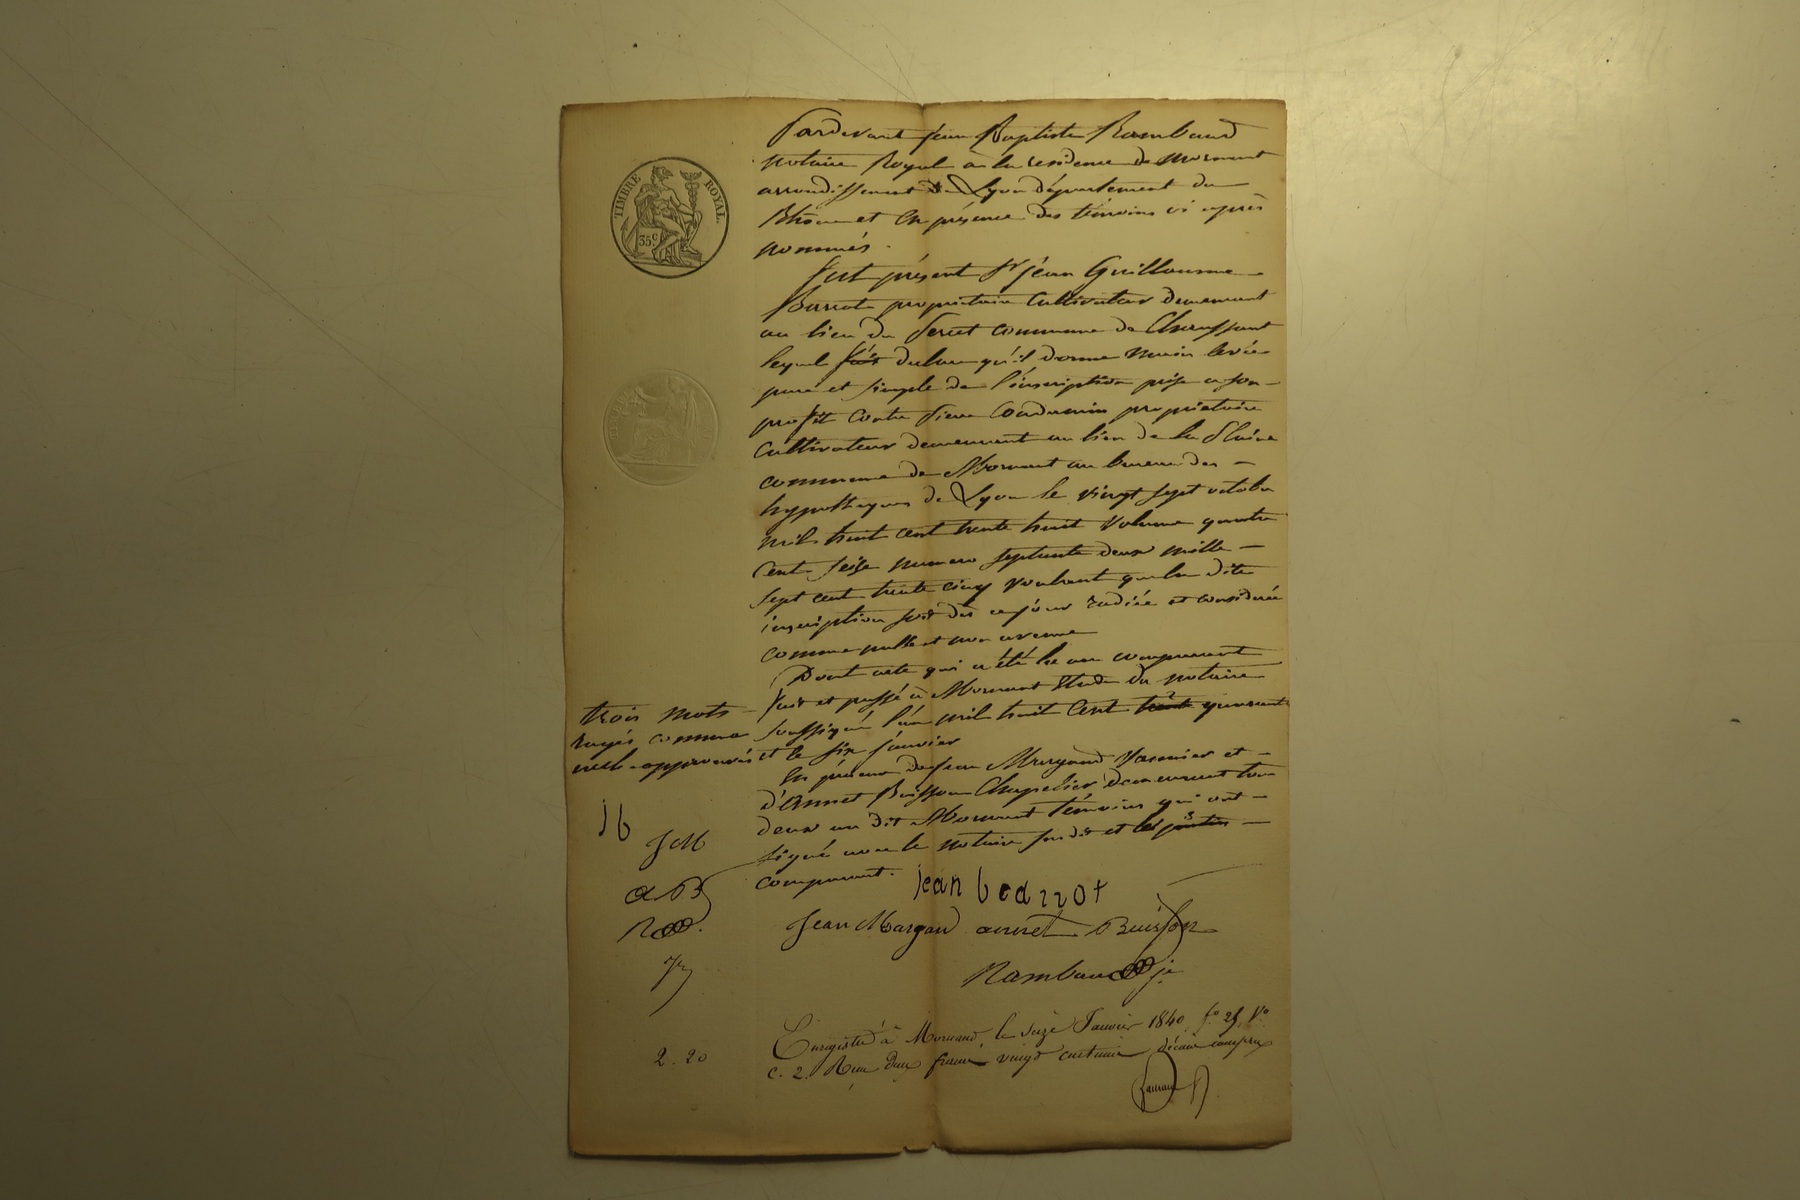 TIMBRE ROYAL
35c
Pardevant Jean Baptiste Rambaud
notaire Royal à la residence de Mornant
arrondissement de Lyon département du
Rhône et en présence des témoins ci après
nommés.
fut présent Sr jean Guillaume
Barrot propriétaire cultivateur demeurant
au lieu du commune de Chaussant
lequel fait déclare qu'il donne main levée
pure et simple de l'inscription prise a son
profit contre pierre Condamin propriétaire
cultivateur demeurant au lieu de la Plaine
commune de Mornant au bureau des
hypothèques de Lyon le vingt sept octobre
mil huit cent trente huit volume quatre
cent seize numero septante deux mille
sept cent trente cinq voulant que la dite
inscription soit dès ce jour radiée et considerée
comme nulle et non avenue
Dont acte qui a été lu au comparant
fait et passé à Mornant Etude du notaire
soussigné l'an mil huit cent trente quarante
et le six janvier
En présence de Jean Margand et
d'Annet Buisson Chapelier demeurant tous
deux au dit Mornant témoins qui ont
signé avec le notaire susdit et les parties
comparant.
trois mots
rayés comme
nuls approuvés
jb
JM
AB
jean barrot
Jean Margand annet Buisson
Rambaud
Enregistré à Mornant, le seize Janvier 1840, fo 25 Vo
c. 2. Reçu deux francs vingt centimes décime compris
2. 20